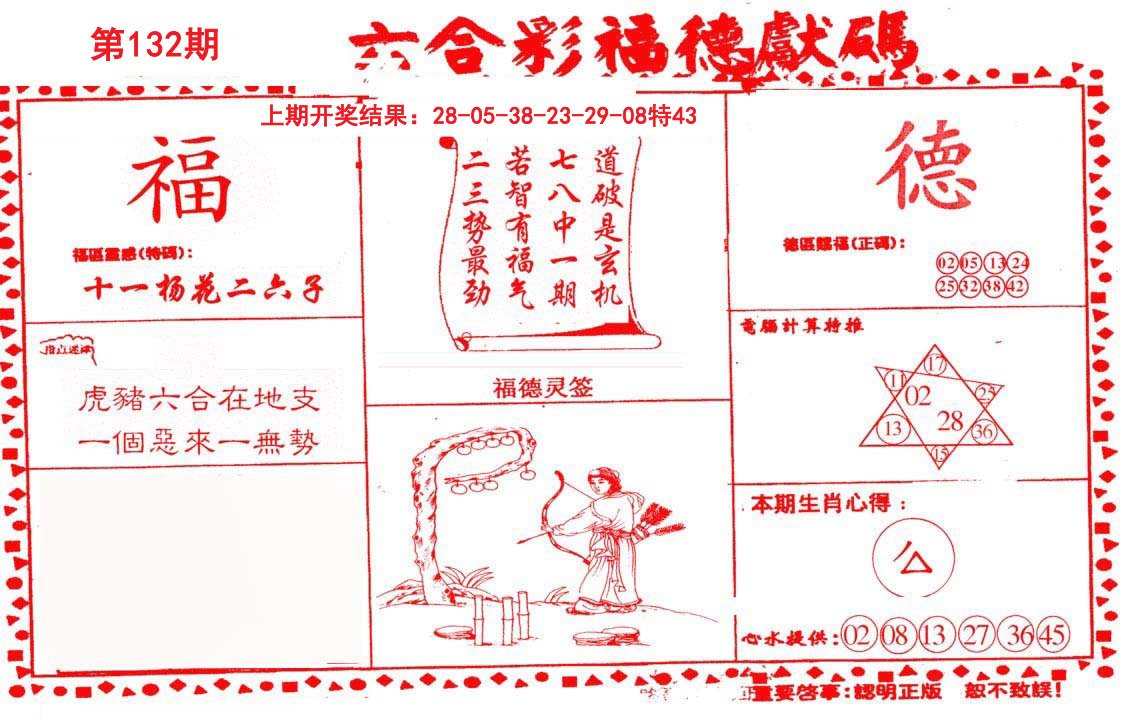 第132期
六合彩福德獻碼
上期开奖结果：28-05-38-23-29-08特43
福
福區靈感(特碼)：
十一杨花二六子
虎豬六合在地支
一個惡來一無勢
道破是玄机
七八中一期
若智有福气
二三势最劲
福德灵签
德
德區賜福(正碼)：
02 05 13 24
25 32 38 42
電腦計算特推
17
11 02 25
13 28 36
15
本期生肖心得：
心水提供：02 08 13 27 36 45
重要啓事：認明正版 恕不致誤！